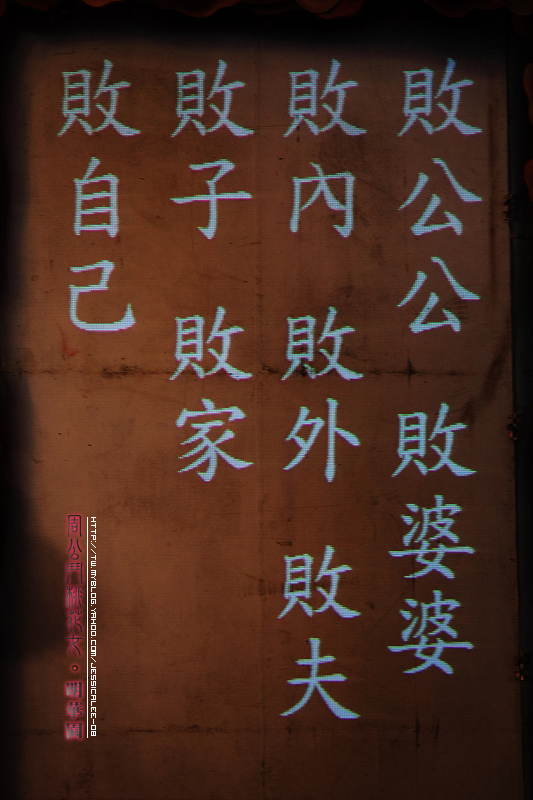 敗公公 敗婆婆
敗內 敗外 敗夫
敗子 敗家
敗自己
周公鬥桃花女。明華園
HTTP://TW.MYBLOG.YAHOO.COM/JESSICALEE-08